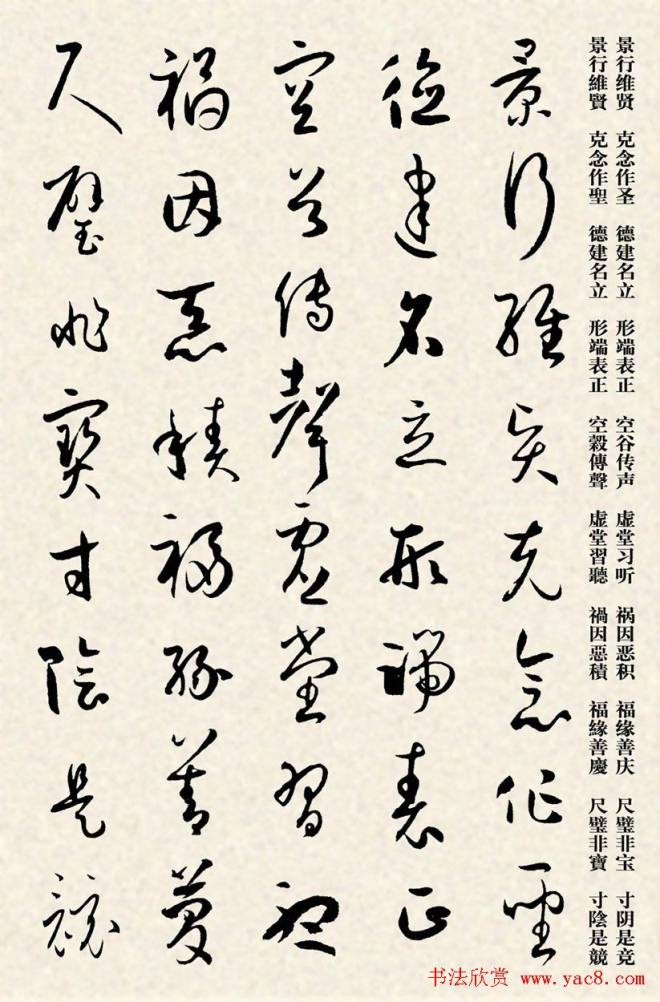 景行维贤　克念作圣　德建名立　形端表正　空谷传声　虚堂习听　祸因恶积　福缘善庆　尺璧非宝　寸阴是竞
景行維賢　克念作聖　德建名立　形端表正　空穀傳聲　虚堂習聽　禍因惡積　福緣善慶　尺璧非寶　寸陰是競
景行維賢克念作聖
德建名立形端表正
空谷傳聲虛堂習聽
禍因惡積福緣善慶
尺璧非寶寸陰是競
书法欣赏 www.yac8.com